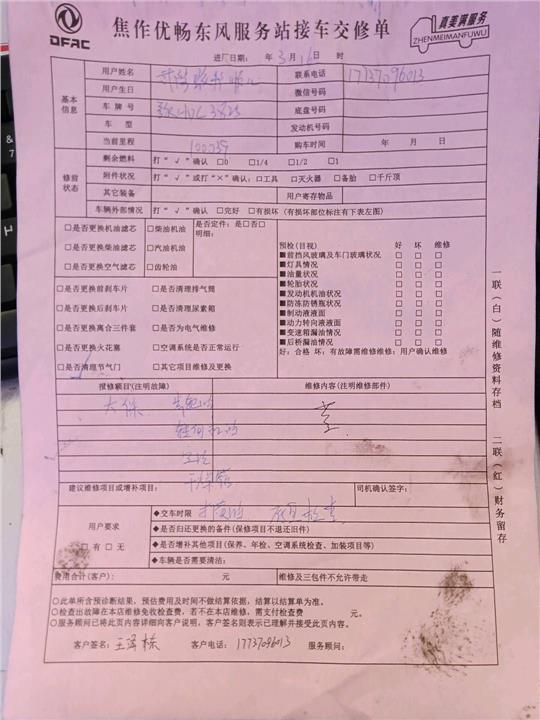 DFAC
焦作优畅东风服务站接车交修单
真美满服务
ZHENMEIMANFUWU
进厂日期： 年 3 月 16 日 时
基本信息
用户姓名 联系电话 17737096013
用户生日 微信号码
车牌号 底盘号码
车型 发动机号码
当前里程 100039 购车时间 年 月 日
修前状态
剩余燃料 打“√”确认 □0 □1/4 □1/2 □1
附件状况 打“√”或打“×”确认：□工具 □灭火器 □备胎 □千斤顶
其它装备 用户寄存物品
车辆外部情况 打“√”确认 □完好 □有损坏（有损坏部位标注有下表左图）
□是否更换机油滤芯 □柴油机油 是否定件：是□否□
□是否更换柴油滤芯 □汽油机油 明细：
□是否更换空气滤芯 □齿轮油
□是否更换前刹车片 □是否清理排气筒
□是否更换后刹车片 □是否清理尿素箱
□是否更换离合三件套 □是否为电气维修
□是否更换火花塞 □空调系统是否正常运行
□是否清理节气门 □其它项目维修及更换
预检(目视) 好 坏 维修
■前挡风玻璃及车门玻璃状况 □ □ □
■灯具情况 □ □ □
■油量状况 □ □ □
■轮胎状况 □ □ □
■发动机机油状况 □ □ □
■防冻防锈瓶状况 □ □ □
■制动液液面 □ □ □
■动力转向液液面 □ □ □
■变速箱漏油情况 □ □ □
■后桥漏油情况 □ □ □
好：合格 坏：有故障需维修维修：用户确认维修
报修项目(注明故障) 维修内容(注明维修部件)
大保
建议维修项目或增补项目： 司机确认签字：
用户要求
□有 □无
◆交车时限
◆是否归还更换的备件（保修项目不退旧件）
◆是否增补其他项目（保养、年检、空调系统检查、加装项目等）
◆车辆是否需要清洁：
费用合计(客户)： 元 维修及三包件不允许带走
○此单所含预诊断结果，预估费用及时间不做结算依据，结算以结算单为准。
○检查出故障在本店维修免收检查费，若不在本店维修，需支付检查费 元。
○服务顾问已将此页内容详细向客户说明，客户签名则表示已理解并接受此页内容。
客户签名： 王泽栋 客户电话： 17737096013 服务顾问：
一联（白）随维修资料存档 二联（红）财务留存